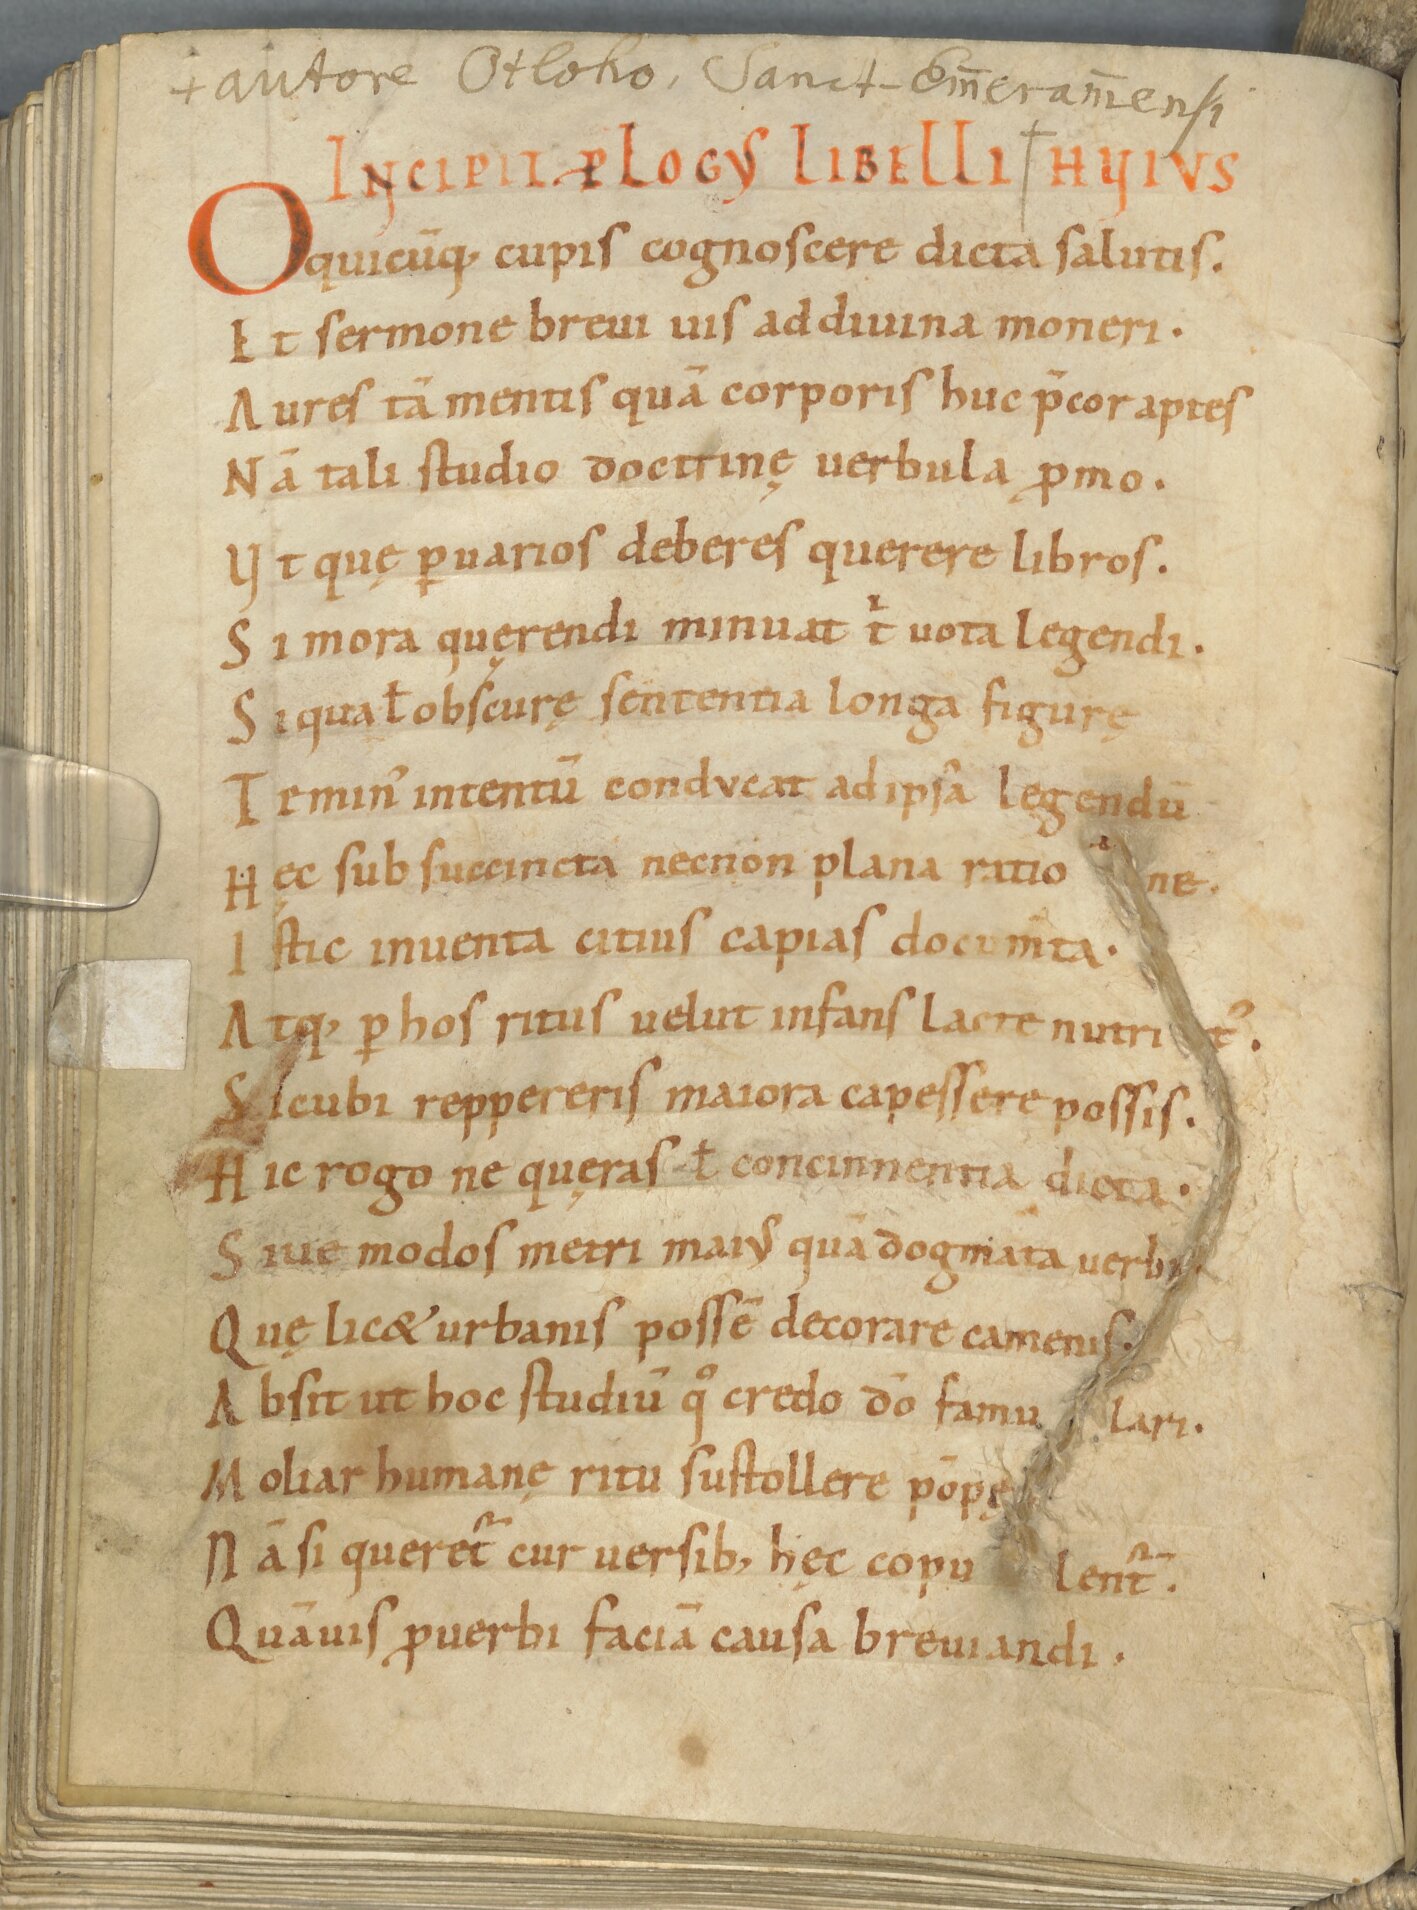 + autore Otloho, Sanct-Em̄eram̄ensi
INCIPIT PLOGUS LIBELLI † HUIUS
O quicūq, cupis cognoscere dicta salutis.
Et sermone breui uis ad diuina moneri.
Aures tā mentis quā corporis huc p̄cor aptes
Nā tali studio doctrinę uerbula ꝓmo.
Vt quę ꝑ uarios deberes querere libros.
Si mora quęrendi minuat t̄ uota legendi.
Si qua ł obscurę sententia longa figurę
T&min᾽ intentū conducat ad ipsā legendū
Hęc sub succincta necnon plana ratione.
Istic inuenta citius capias documt̄a.
Atq, ꝑ hos ritus uelut infans lacte nutrit᾽.
Sicubi reppereris maiora capessere possis.
Hic rogo ne quęras ł concinnentia dicta.
Siue modos metri maiꝰ quā dogmata uerbi.
Quę lic& urbanis possē decorare camenis.
Absit ut hoc studiū qͦ credo dō famulari.
Moliar humanę ritu sustollere pōpę
Nā si queret᾽ cur uersib, hęc copulent᾽.
Quāuis ꝓuerbi faciā causa breuiandi.